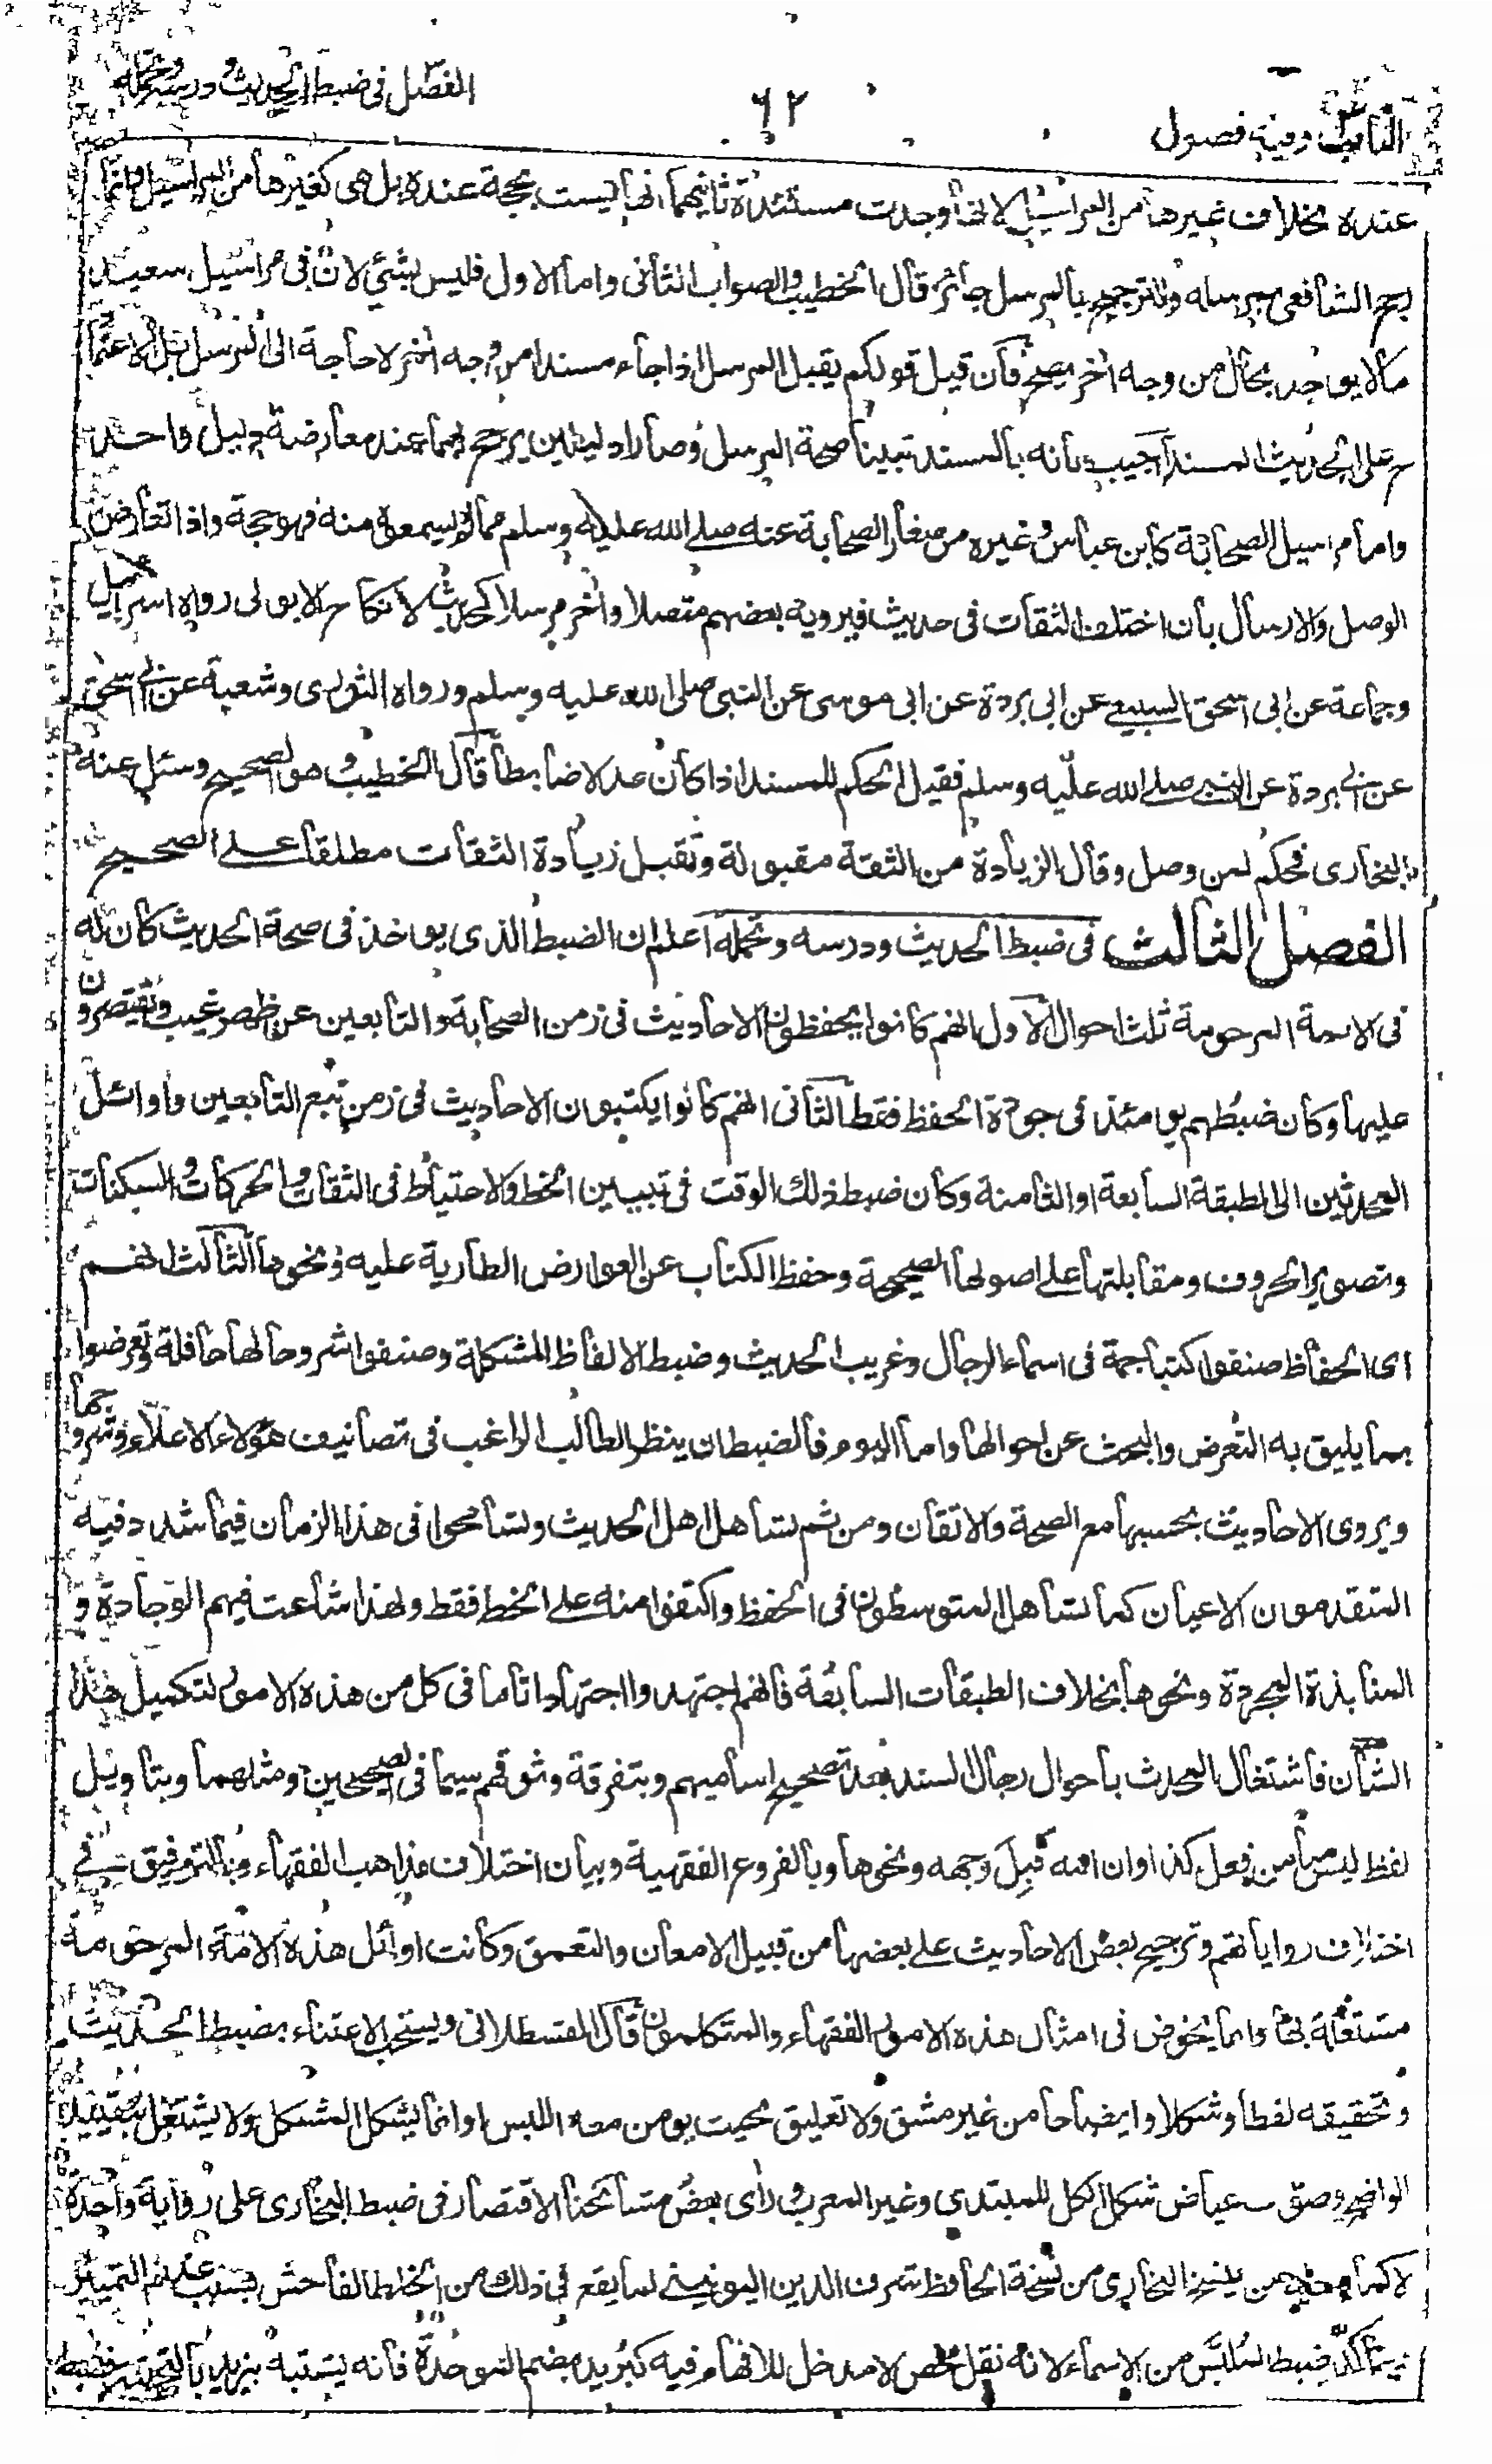 الباب وفيه فصول
٦٢
الفصل في ضبط الحديث ودرسه وتحمله
عنده بخلاف غيرها من المراسيل لانها وجدت مستندة ثانيهما انها ليست بحجة عنده بل هى كغيرها من المراسيل وانما
رجح الشافعى بمرسله والترجيح بالمرسل جائز قال الخطيب والصواب الثانى واما الاول فليس بشئ لان فى مراسيل سعيد
مالا يوجد بحال من وجه اخر يصح فان قيل قولكم يقبل المرسل اذا جاء مسندا من وجه اخر لا حاجة الى المرسل بل الاعتما
د على الحديث المسند اجيب بانه بالمسند تبينا صحة المرسل وصارا دليلين يرجح بهما عند معارضة دليل واحد
واما مراسيل الصحابة كابن عباس وغيره من صغار الصحابة عنه صلى الله عليه وسلم مما لم يسمعوه منه فهو حجة واذا تعارض
الوصل والارسال بان اختلف الثقات فى حديث فيرويه بعضهم متصلا واخر مرسلا كحديث لا نكاح الا بولى رواه اسرائيل
وجماعة عن ابى اسحق السبيعى عن ابى بردة عن ابى موسى عن النبى صلى الله عليه وسلم ورواه الثورى وشعبة عن ابى اسحق
عن ابى بردة عن النبى صلى الله عليه وسلم فقيل الحكم للمسند اذا كان عدلا ضابطا قال الخطيب وهو الصحيح وسئل عنه
البخارى فحكم لمن وصل وقال الزيادة من الثقة مقبولة وتقبل زيادة الثقات مطلقا على الصحيح
الفصل الثالث فى ضبط الحديث ودرسه وتحمله اعلم ان الضبط الذى يواخذ فى صحة الحديث كان له
فى الامة المرحومة ثلث احوال الاول انهم كانوا يحفظون الاحاديث فى زمن الصحابة والتابعين عن ظهر غيب ويقتصرون
عليها وكان ضبطهم يومئذ فى جودة الحفظ فقط الثانى انهم كانوا يكتبون الاحاديث فى زمن تبع التابعين واوائل
المحدثين الى الطبقة السابعة او الثامنة وكان ضبط ذلك الوقت فى تبيين الخط والاحتياط فى النقات والحركات والسكنات
وتصوير الحروف ومقابلتها على اصولها الصحيحة وحفظ الكتاب عن العوارض الطارية عليه ونحوها الثالث انهم
اى الحفاظ صنفوا كتبا جمة فى اسماء الرجال وغريب الحديث وضبط الالفاظ المشكلة وصنفوا شروحا لها حافلة وتعرضوا
بما يليق به التعرض والبحث عن احوالها واما اليوم فالضبط ان ينظر الطالب الراغب فى تصانيف هؤلاء الاعلام وشروحها
ويروى الاحاديث بحسبها مع الصحة والاتقان ومن ثم تساهل اهل الحديث وتسامحوا فى هذا الزمان فيما شدد فيه
المتقدمون الاعيان كما تساهل المتوسطون فى الحفظ واكتفوا منه على الخط فقط ولهذا شاعت فيهم الوجادة و
المنابذة المجردة ونحوها بخلاف الطبقات السابقة فانهم اجتهدوا اجتهادا تاما فى كل من هذه الامور لتكميل هذا
الشان فاشتغال المحدث باحوال رجال السند بعد تصحيح اساميهم وبتفرقة وثوقهم سيما فى الصحيحين ومثلهما وبتاويل
لفظ ليس منا من فعل كذا او ان الله قبل وجهه ونحوها وبالفروع الفقهية وبيان اختلاف مذاهب الفقهاء وبالتوفيق فى
اختلاف رواياتهم وترجيح بعض الاحاديث على بعضها من قبيل الامعان والتعمق وكانت اوائل هذه الامة المرحومة
مشتغلة بها وانما يخوض فى امثال هذه الامور الفقهاء والمتكلمون قال القسطلانى ويستحب الاعتناء بضبط الحديث
وتحقيقه نقطا وشكلا وايضاحا من غير مشق ولا تعليق بحيث يومن معه اللبس وانما يشكل المشكل ولا يشتغل بتقييد
الواضح وصوب عياض شكل الكل للمبتدى وغير المعرب وراى بعض مشائخنا الاقتصار فى ضبط البخارى على رواية واحدة
لا كما يفعله من ينسخ البخارى من نسخة الحافظ شرف الدين اليونينى لما يقع فى ذلك من الخلط الفاحش بسبب عدم التمييز
ويتاكد ضبط الملبس من الاسماء لانه نقل محض لا مدخل للافهام فيه كبريد بضم الموحدة فانه يشتبه بيزيد بالتحتية فضبط